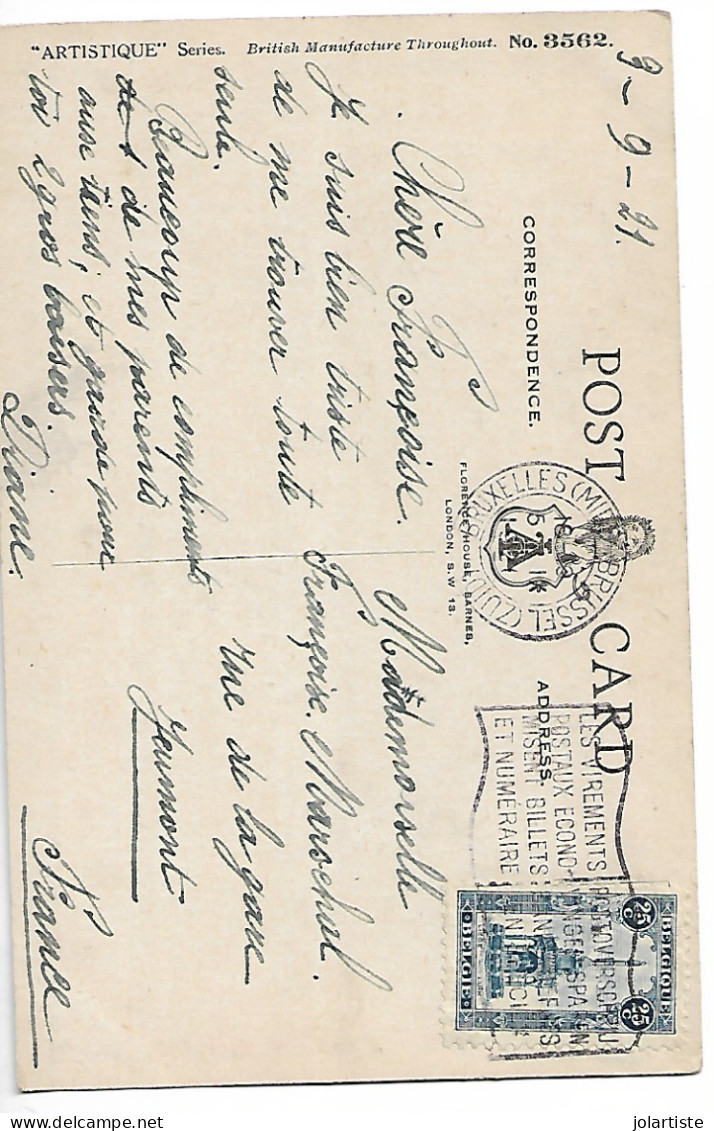 "ARTISTIQUE" Series. British Manufacture Throughout. No. 3562.
POST CARD
CORRESPONDENCE.
ADDRESS.
FLORENCE HOUSE, BARNES,
LONDON, S.W 13.
9-9-21.
Chère Françoise.
Je suis bien triste
de me trouver toute
seule.
Beaucoup de compliments
de mes parents
et garde pour
toi 2 gros baisers.
Diane.
Mademoiselle
Françoise Marschal.
rue de la gare
Jeumont
France
BRUXELLES (MIDI)
BRUSSEL (ZUID)
LES VIREMENTS
POSTAUX ECONO-
MISENT BILLETS
ET NUMÉRAIRE
25 C
25 C
BELGIE
BELGIQUE
jolartiste